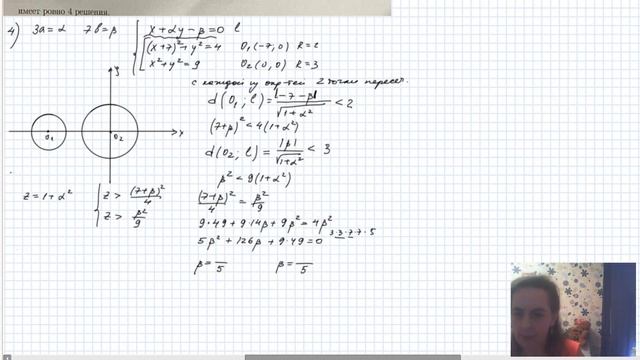 имеет ровно 4 решения.
4) 3a = α 7b = β
{ x + αy − β = 0 l
[ (x+7)² + y² = 4 O₁(−7; 0) R = 2
x² + y² = 9 O₂(0; 0) R = 3
с каждой из окр-тей 2 точки пересеч.
d(O₁; l) = |−7−β| / √(1+α²) < 2
(7+β)² < 4(1+α²)
d(O₂; l) = |β| / √(1+α²) < 3
β² < 9(1+α²)
y
x
O₁
O₂
z = 1 + α²
{ z > (7+β)²/4
z > β²/9
(7+β)²/4 = β²/9
9·49 + 9·14β + 9β² = 4β²
5β² + 126β + 9·49 = 0
3·3·7·7·5
β = /5 β = /5